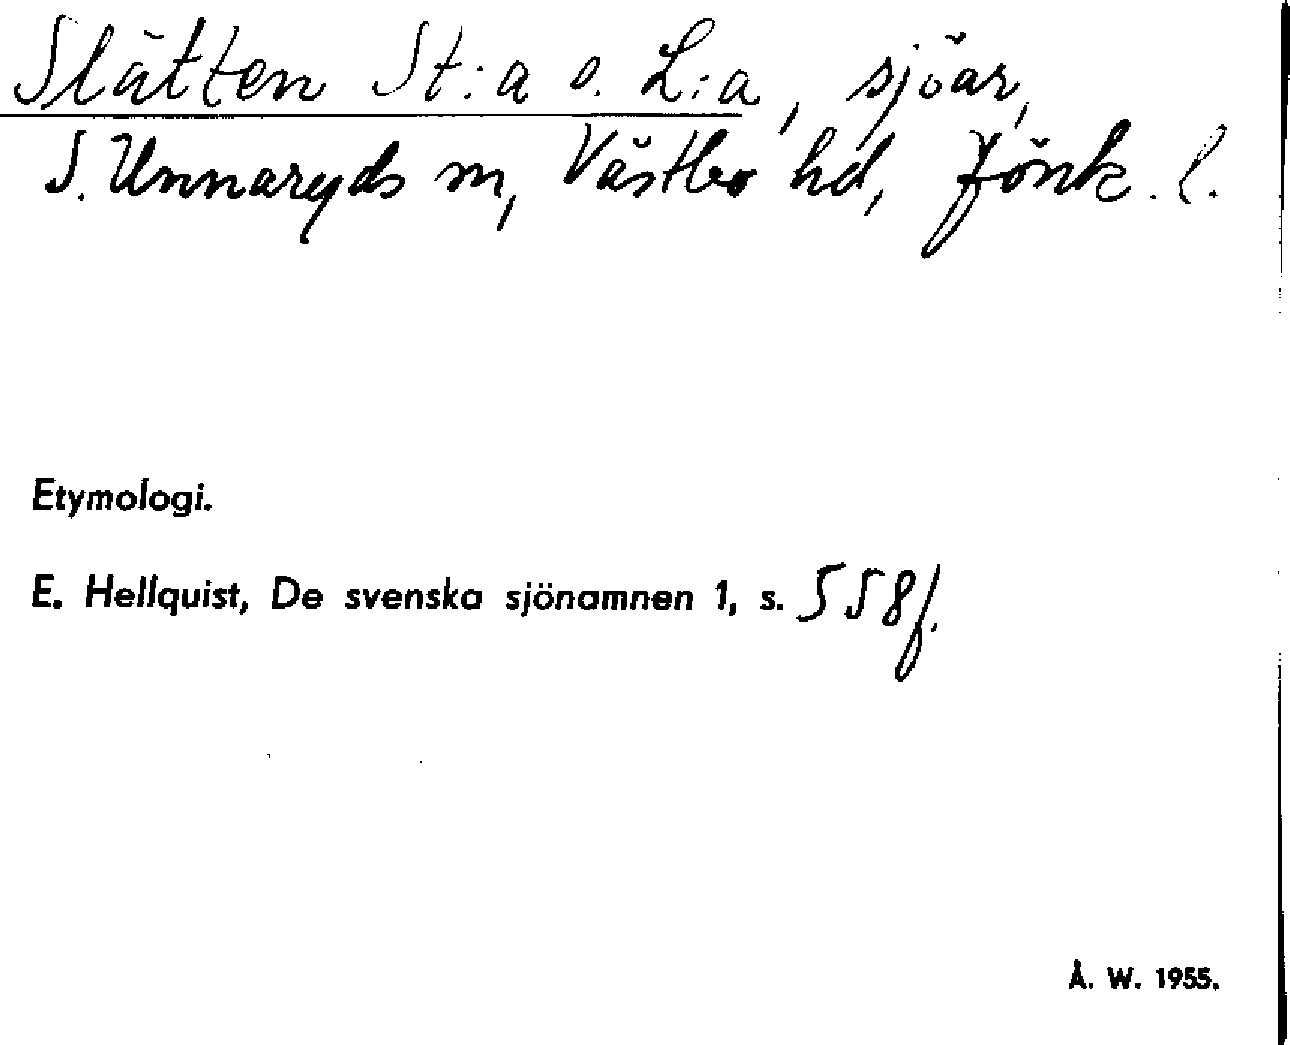 Slätten St:a o. L:a, sjöar,
S. Unnaryds sn, Västbo hd, Jönk. l.
Etymologi.
E. Hellquist, De svenska sjönamnen 1, s. 558f.
Å. W. 1955.